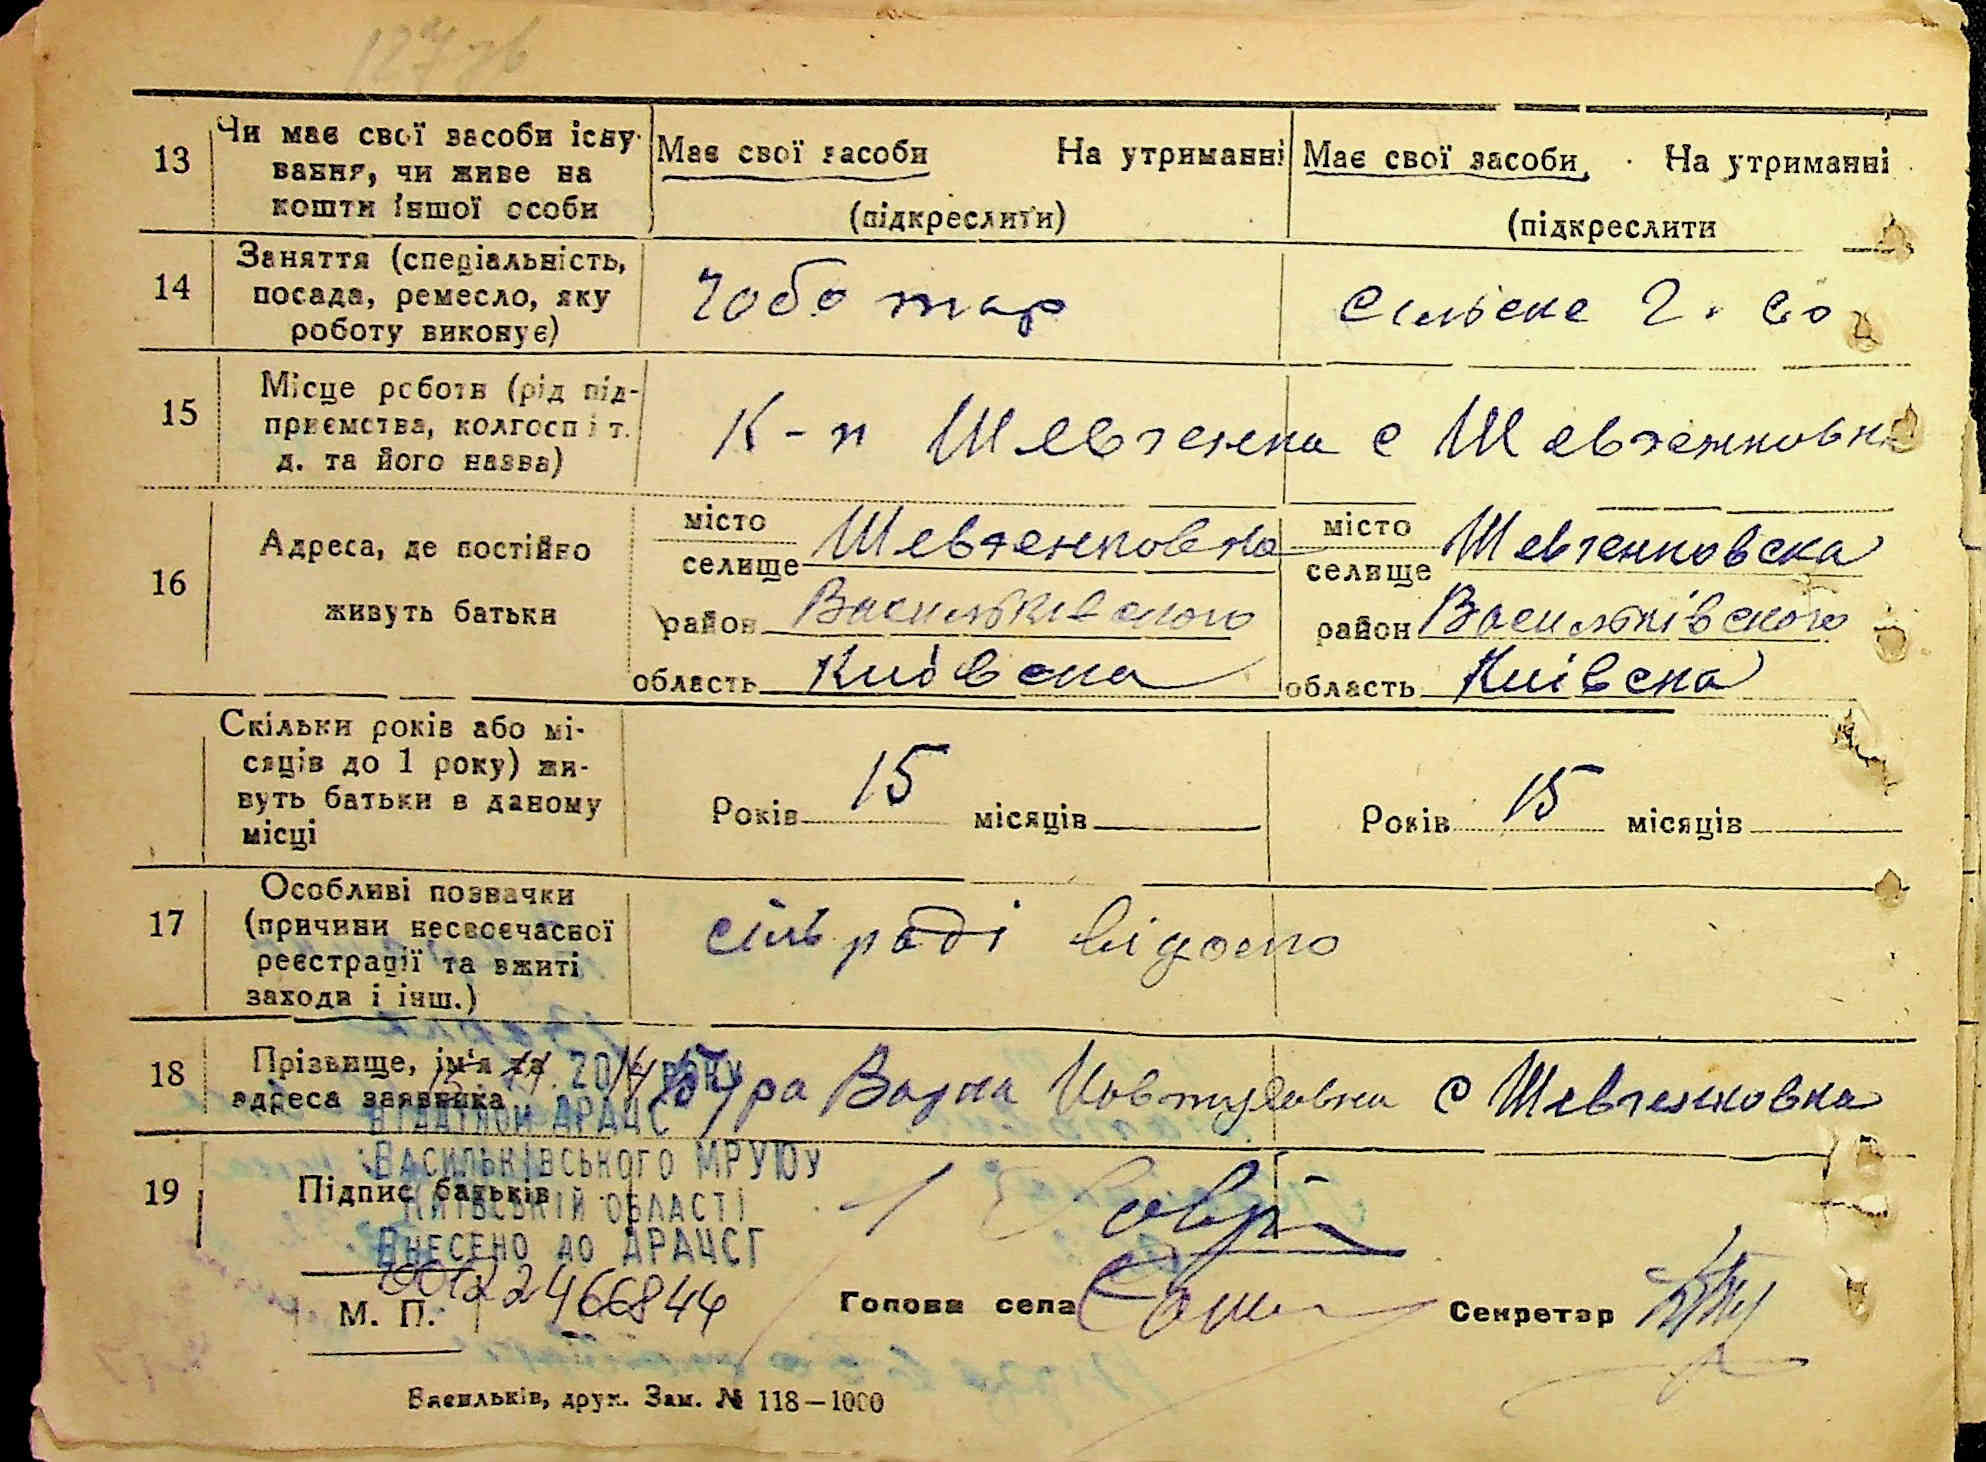 127 зв
13 Чи має свої засоби існу-
вання, чи живе на
кошти іншої особи
Має свої засоби На утриманні
(підкреслити)
Має свої засоби, На утриманні
(підкреслити
14 Заняття (спеціальність,
посада, ремесло, яку
роботу виконує)
Чоботар
Сільске г.
15 Місце роботи (рід під-
приємства, колгосп і т.
д. та його назва)
К-п Шевченка с Шевченковка
16 Адреса, де постійно
живуть батьки
місто
селище Шевченковка
район Васильківського
область Київска
місто
селище Шевченковска
район Васильківского
область Київска
Скільки років або мі-
сяців до 1 року) жи-
вуть батьки в даному
місці
Років 15 місяців
Років 15 місяців
17 Особливі позначки
(причини несвоєчасної
реєстрації та вжиті
заходи і інш.)
сільраді відомо
18 Прізвище, ім'я та
адреса заявника
Варка с Шевченковка
2014 року
ВІДДІЛОМ ДРАЦС
ВАСИЛЬКІВСЬКОГО МРУЮ У
КИЇВСЬКІЙ ОБЛАСТІ
ВНЕСЕНО ДО ДРАЦСГ
00122466844
19 Підпис батьків
М. П.
Голова села
Секретар
Васильків, друк. Зам. № 118—1000